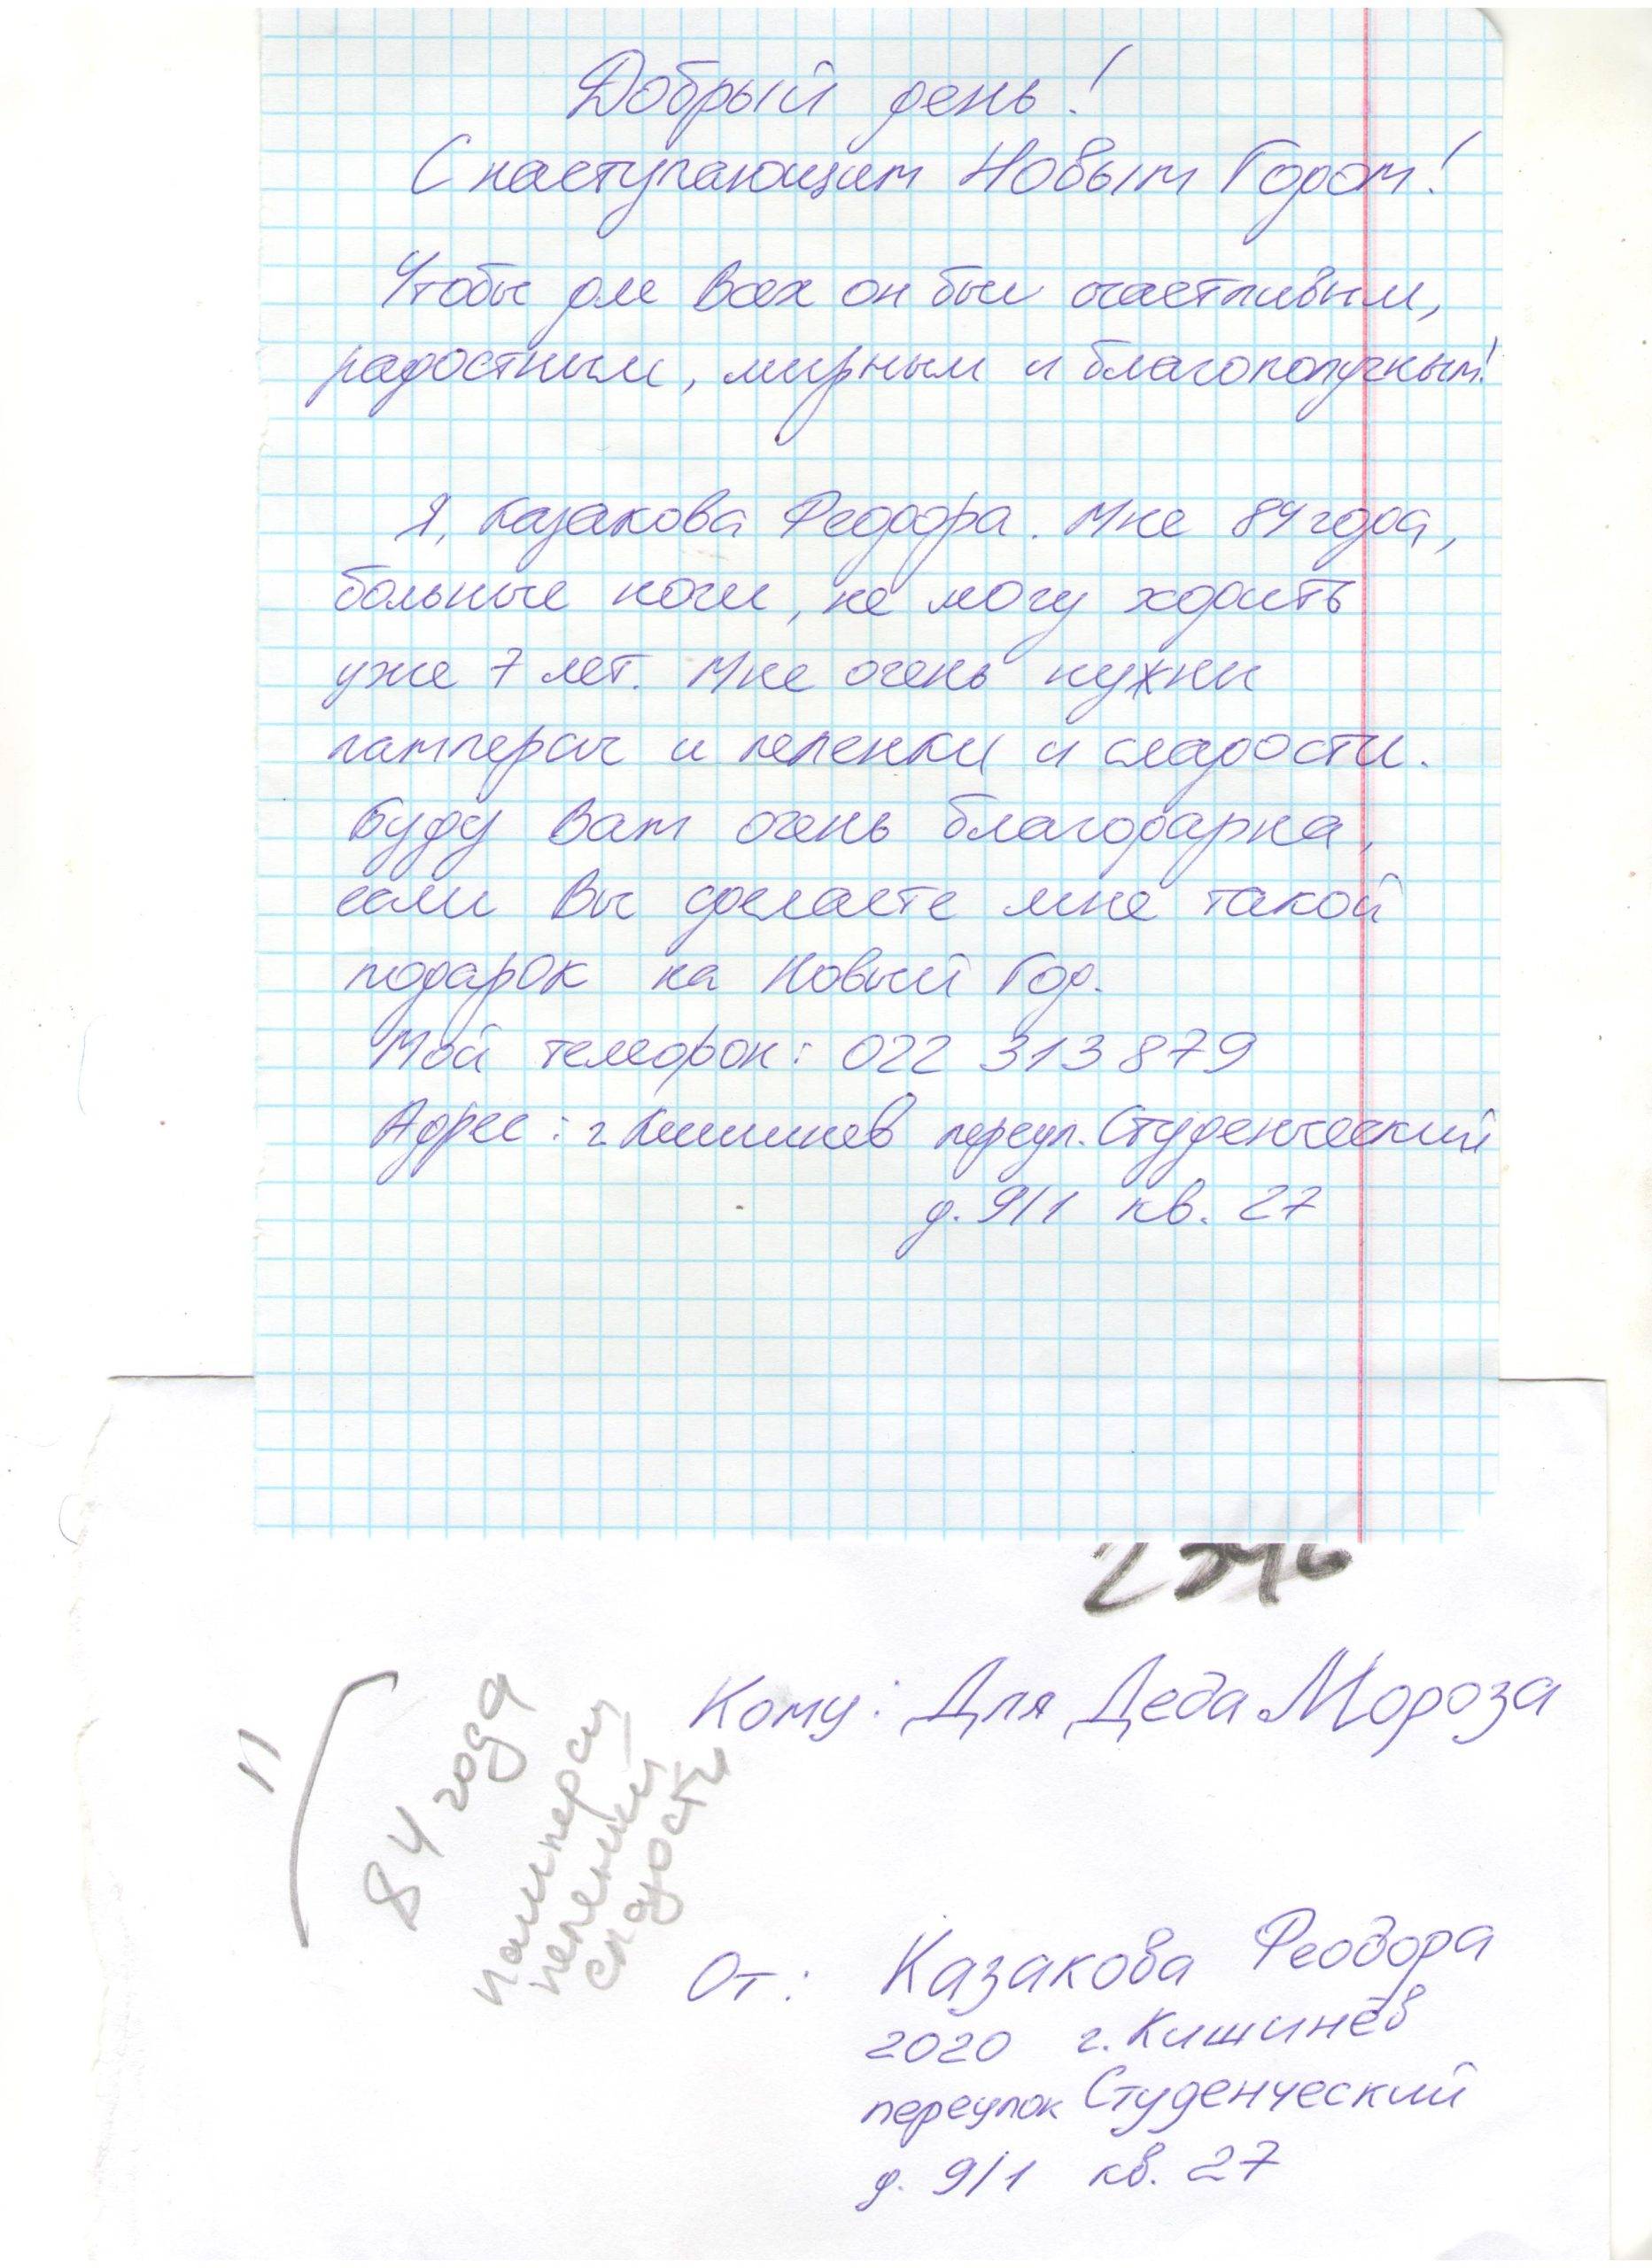 Добрый день!
С наступающим Новым Годом!
Чтобы для Всех он был счастливым,
радостным, мирным и благополучным!
Я, Казакова Феодора. Мне 84 года,
больные ноги, не могу ходить
уже 7 лет. Мне очень нужны
памперсы и пеленки и сладости.
Буду Вам очень благодарна,
если Вы сделаете мне такой
подарок на Новый Год.
Мой телефон: 022 313 879
Адрес: г. Кишинев переул. Студенческий
д. 9/1 кв. 27
Кому: Для Деда Мороза
П
84 года
памперсы
пеленки
сладости
От: Казакова Феодора
2020 г. Кишинёв
переулок Студенческий
д. 9/1 кв. 27